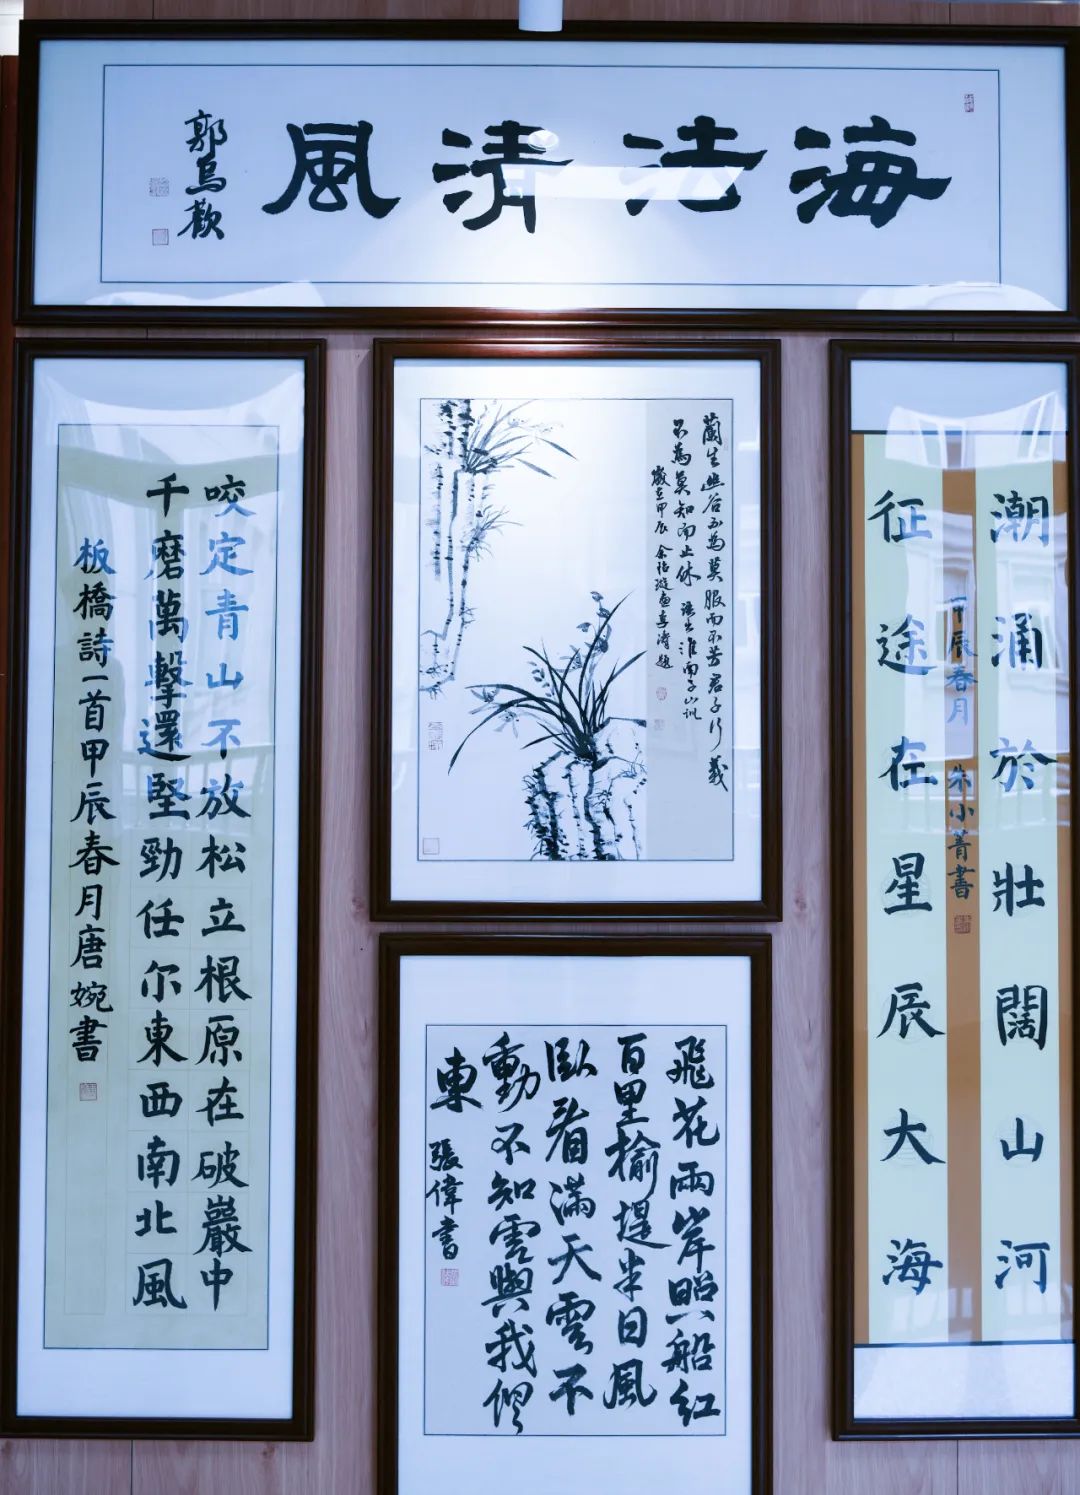 海法清風
潮涌於壯闊山河
征途在星辰大海
甲辰春月 朱小菁書
蘭生幽谷不為莫服而不芳君子行義
不為莫知而止休 語出淮南子山訓
歲在甲辰 余
飛花兩岸照船紅
百里榆堤半日風
臥看滿天雲不
動不知雲與我俱
東
張偉書
咬定青山不放松立根原在破巖中
千磨萬擊還堅勁任尔東西南北風
板橋詩一首甲辰春月唐婉書